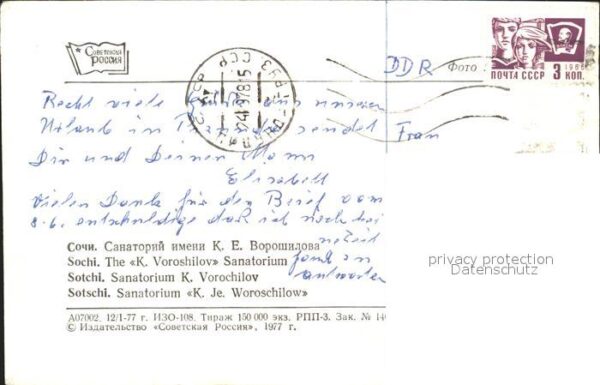 Советская
Россия
DDR
Фото
ПОЧТА СССР 3 КОП.
1966
СССР
Recht viele aus unserem
Urlaub in sendet Frau
Dir und Deinem Mann
Elisabeth
Vielen Dank für den Brief vom
8.6. entschuldige daß ich noch keine
Zeit
fand zu
antworten
Сочи. Санаторий имени К. Е. Ворошилова
Sochi. The «K. Voroshilov» Sanatorium
Sotchi. Sanatorium K. Vorochilov
Sotschi. Sanatorium «K. Je. Woroschilow»
А07002. 12/1-77 г. ИЗО-108. Тираж 150 000 экз. РПП-3. Зак. №
© Издательство «Советская Россия», 1977 г.
privacy protection
Datenschutz